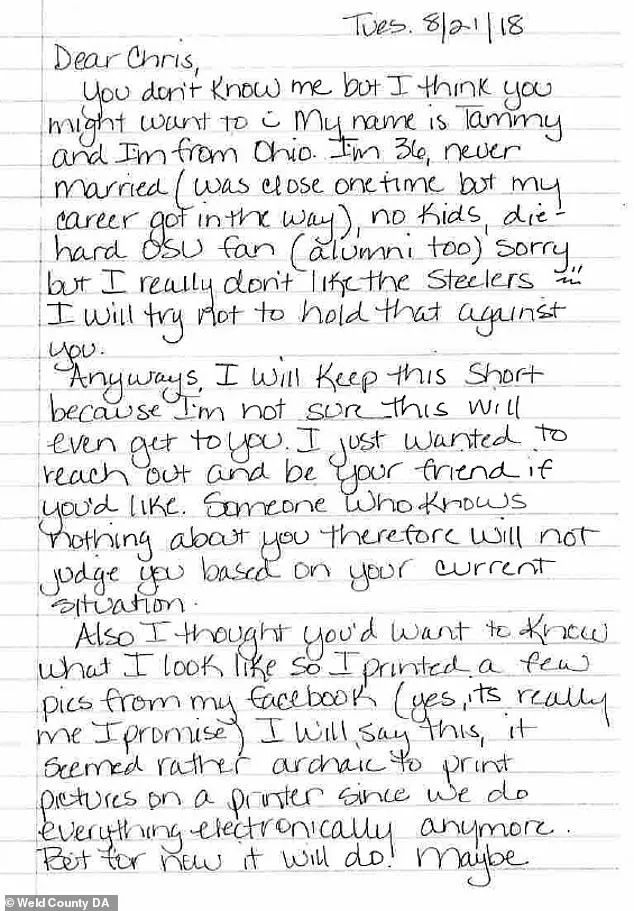 Tues. 8/21/18
Dear Chris,
You don't know me but I think you
might want to My name is Tammy
and I'm from Ohio. I'm 36, never
married (was close one time but my
career got in the way), no kids, die-
hard OSU fan (alumni too) sorry
but I really don't like the Steelers
I will try not to hold that against
you.
Anyways, I will keep this short
because I'm not sure this will
even get to you. I just wanted to
reach out and be your friend if
you'd like. Someone who knows
nothing about you therefore will not
judge you based on your current
situation.
Also I thought you'd want to know
what I look like so I printed a few
pics from my facebook (yes, its really
me I promise) I will say this, it
seemed rather archaic to print
pictures on a printer since we do
everything electronically anymore.
But for now it will do! Maybe
© Weld County DA